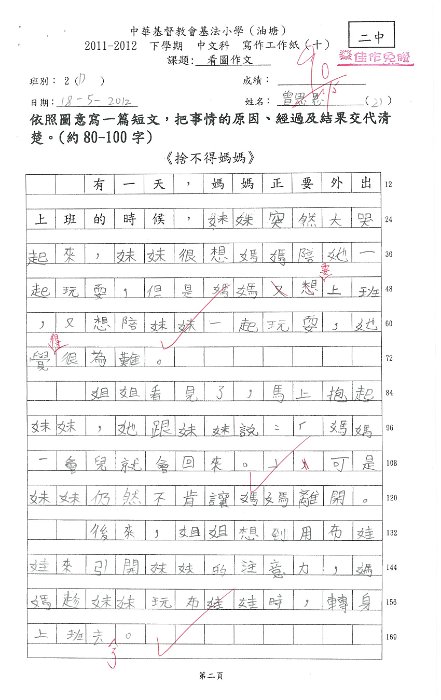 中華基督教會基法小學（油塘）
二中
2011-2012 下學期 中文科 寫作工作紙（十）
課題：看圖作文
90
班別：2（D）
成績：
日期：18-5-2012
姓名：
依照圖意寫一篇短文，把事情的原因、經過及結果交代清
楚。（約80-100字）
《捨不得媽媽》
有一天，媽媽正要外出 12
上班的時候，妹妹突然大哭 24
起來，妹妹很想媽媽陪她一 36
起玩耍，但是媽媽又想上班 48
要
，又想陪妹妹一起玩耍，她 60
得
覺很為難。 72
姐姐看見了，馬上抱起 84
妹妹，她跟妹妹說：「媽媽 96
一會兒就會回來。」可是 108
妹妹仍然不肯讓媽媽離開。 120
後來，姐姐想到用布娃 132
娃來引開妹妹的注意力，媽 144
媽趁妹妹玩布娃娃時，轉身 156
上班去。 160
了
第二頁